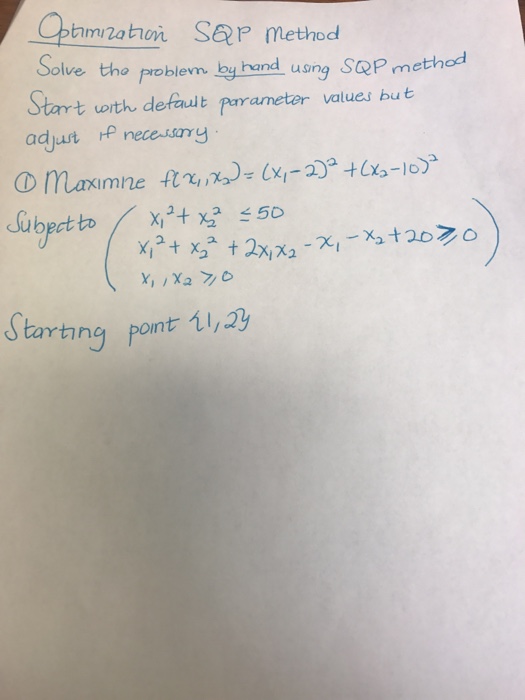 Optimization SQP Method
Solve the problem by hand using SQP method
Start with default parameter values but
adjust if necessary.
① Maximize f(x₁,x₂) = (x₁-2)² + (x₂-10)²
Subject to
x₁² + x₂² ≤ 50
x₁² + x₂² + 2x₁x₂ - x₁ - x₂ + 20 ≥ 0
x₁, x₂ ≥ 0
Starting point {1,2}